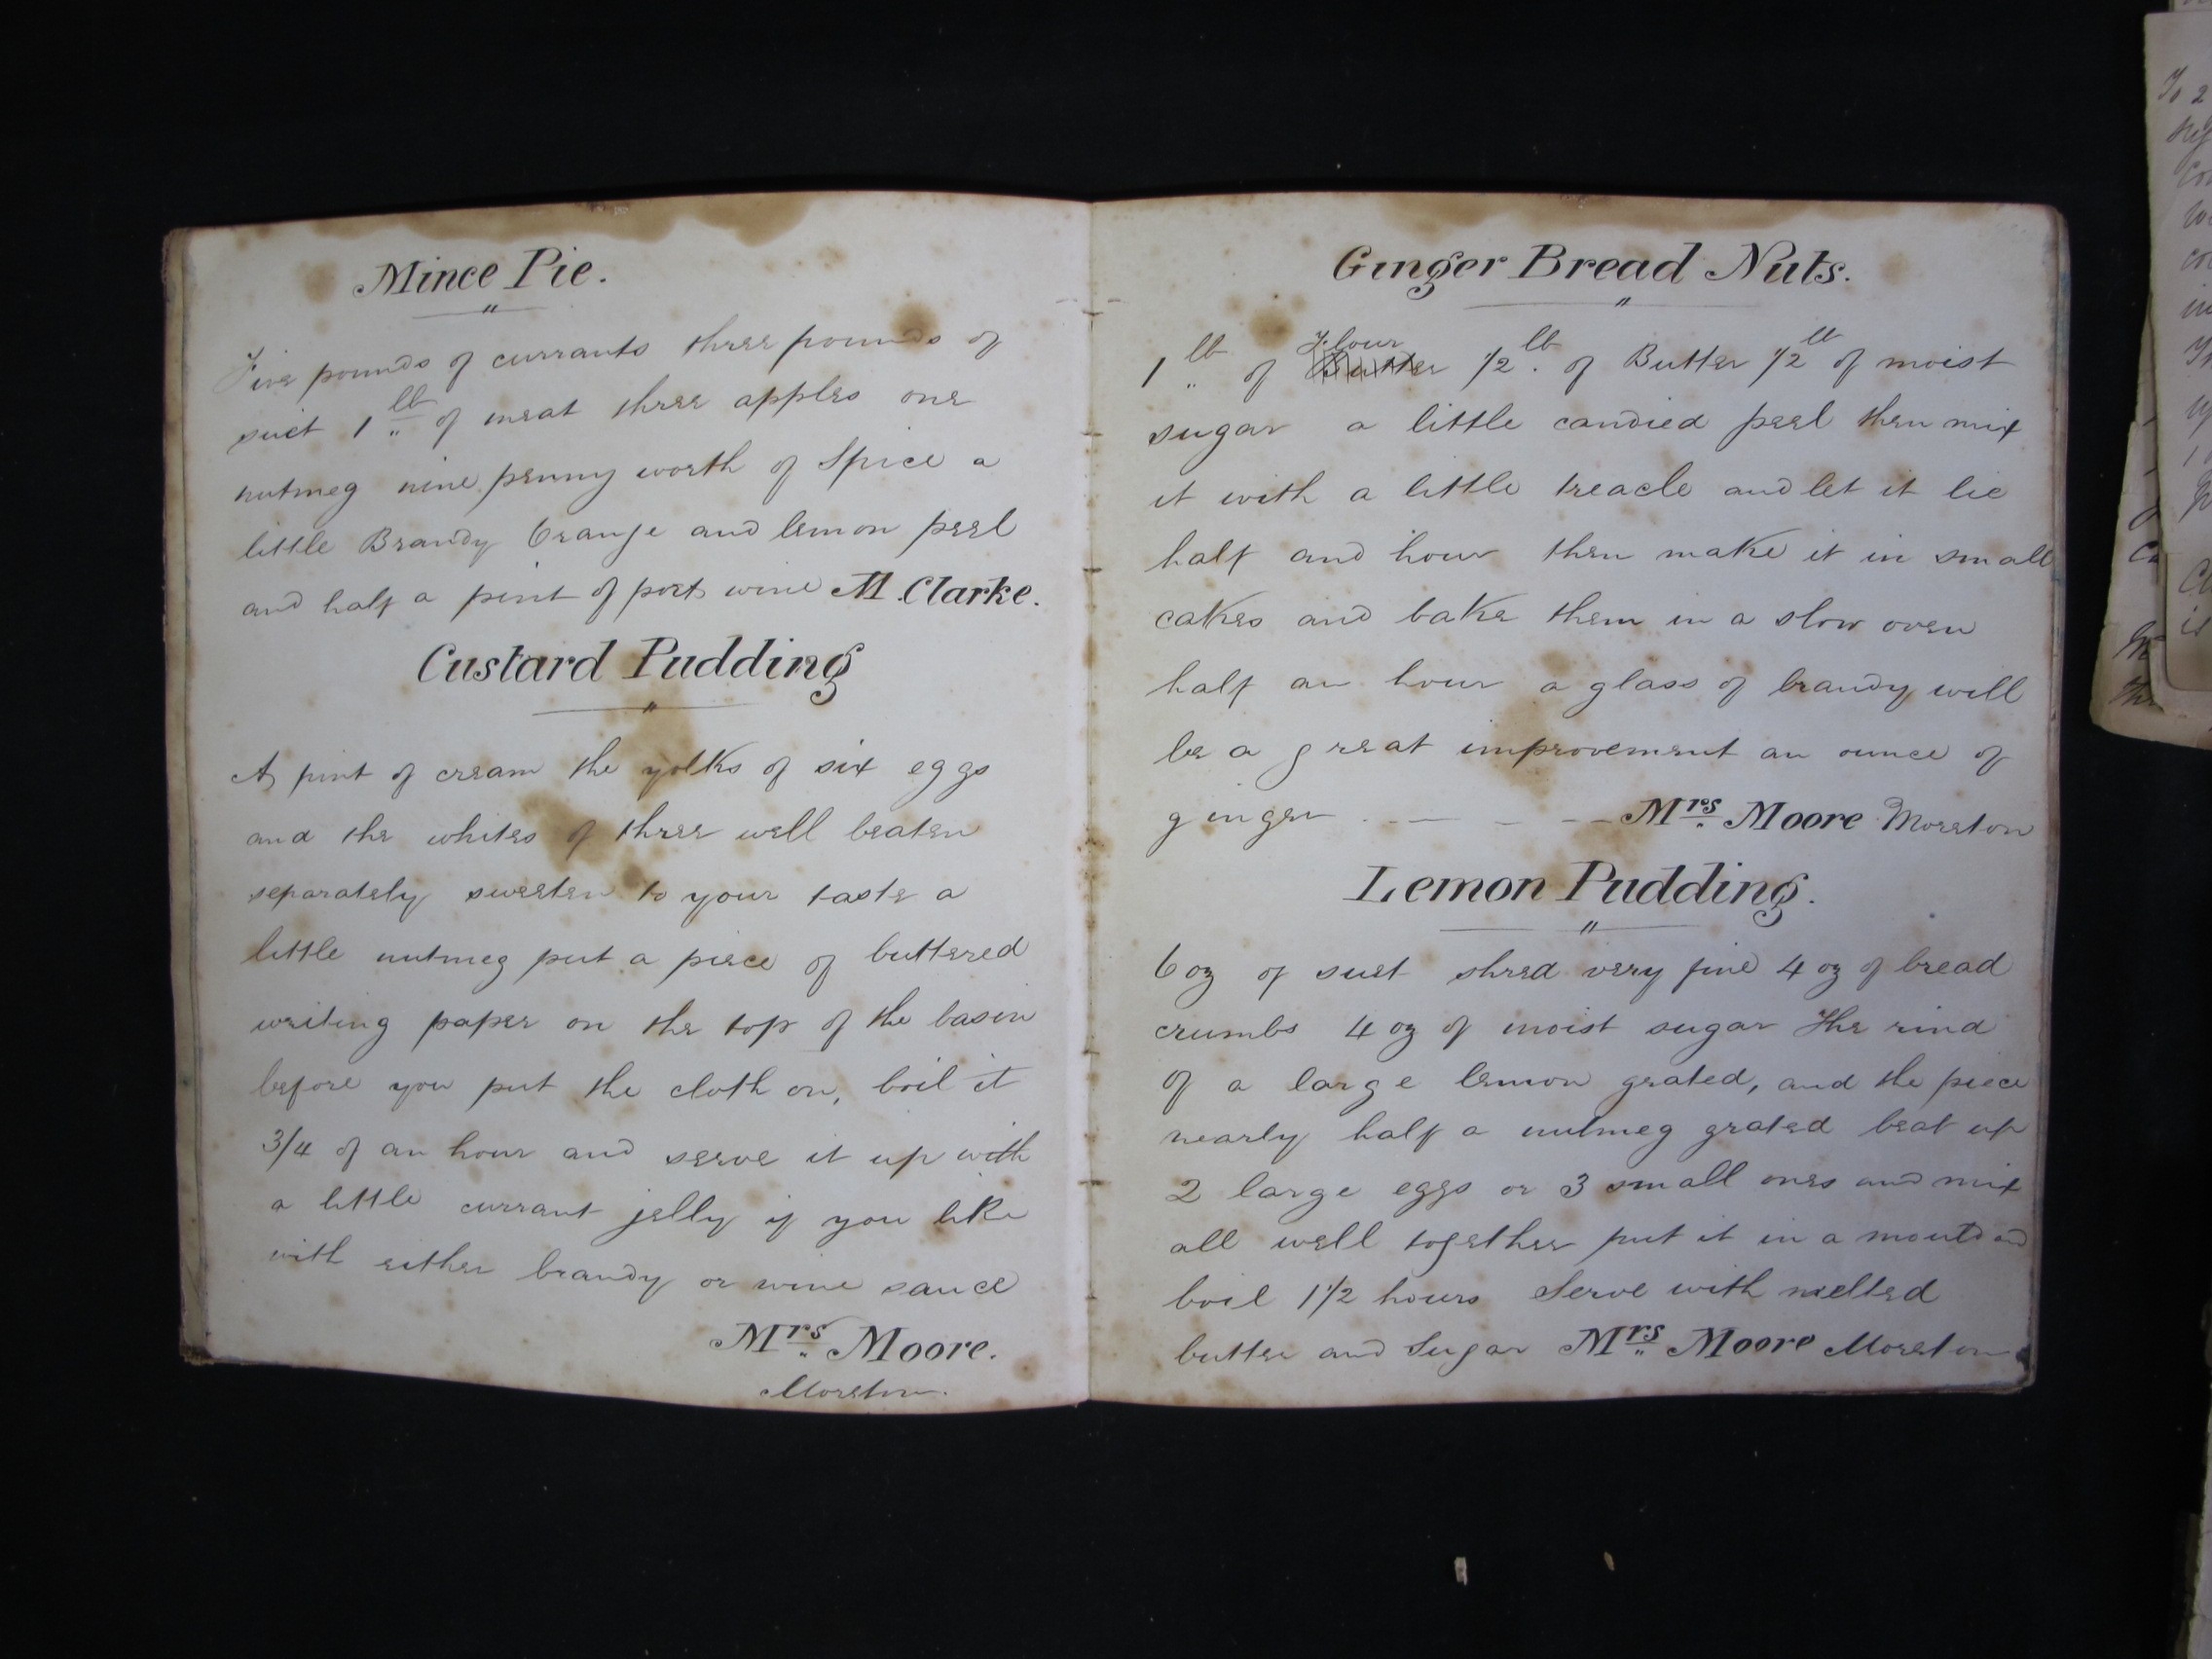 Mince Pie.
Five pounds of currants three pounds of
suet 1 lb of meat three apples one
nutmeg nine penny worth of Spice a
little Brandy Orange and lemon peel
and half a pint of port wine M. Clarke.
Custard Pudding
A pint of cream the yolks of six eggs
and the whites of three well beaten
separately sweeten to your taste a
little nutmeg put a piece of buttered
writing paper on the top of the basin
before you put the cloth on, boil it
3/4 of an hour and serve it up with
a little currant jelly if you like
with either brandy or wine sauce
Mrs Moore.
Morston.
Ginger Bread Nuts.
1 lb of Butter Flour 1/2 lb. of Butter 1/2 lb of moist
sugar a little candied peel then mix
it with a little treacle and let it lie
half and hour then make it in small
cakes and bake them in a slow oven
half an hour a glass of brandy will
be a great improvement an ounce of
ginger - - - - Mrs Moore Morston
Lemon Pudding.
6 oz of suet shred very fine 4 oz of bread
crumbs 4 oz of moist sugar The rind
of a large lemon grated, and the piece
nearly half a nutmeg grated beat up
2 large eggs or 3 small ones and mix
all well together put it in a mould and
boil 1 1/2 hours Serve with melted
butter and Sugar Mrs Moore Morston